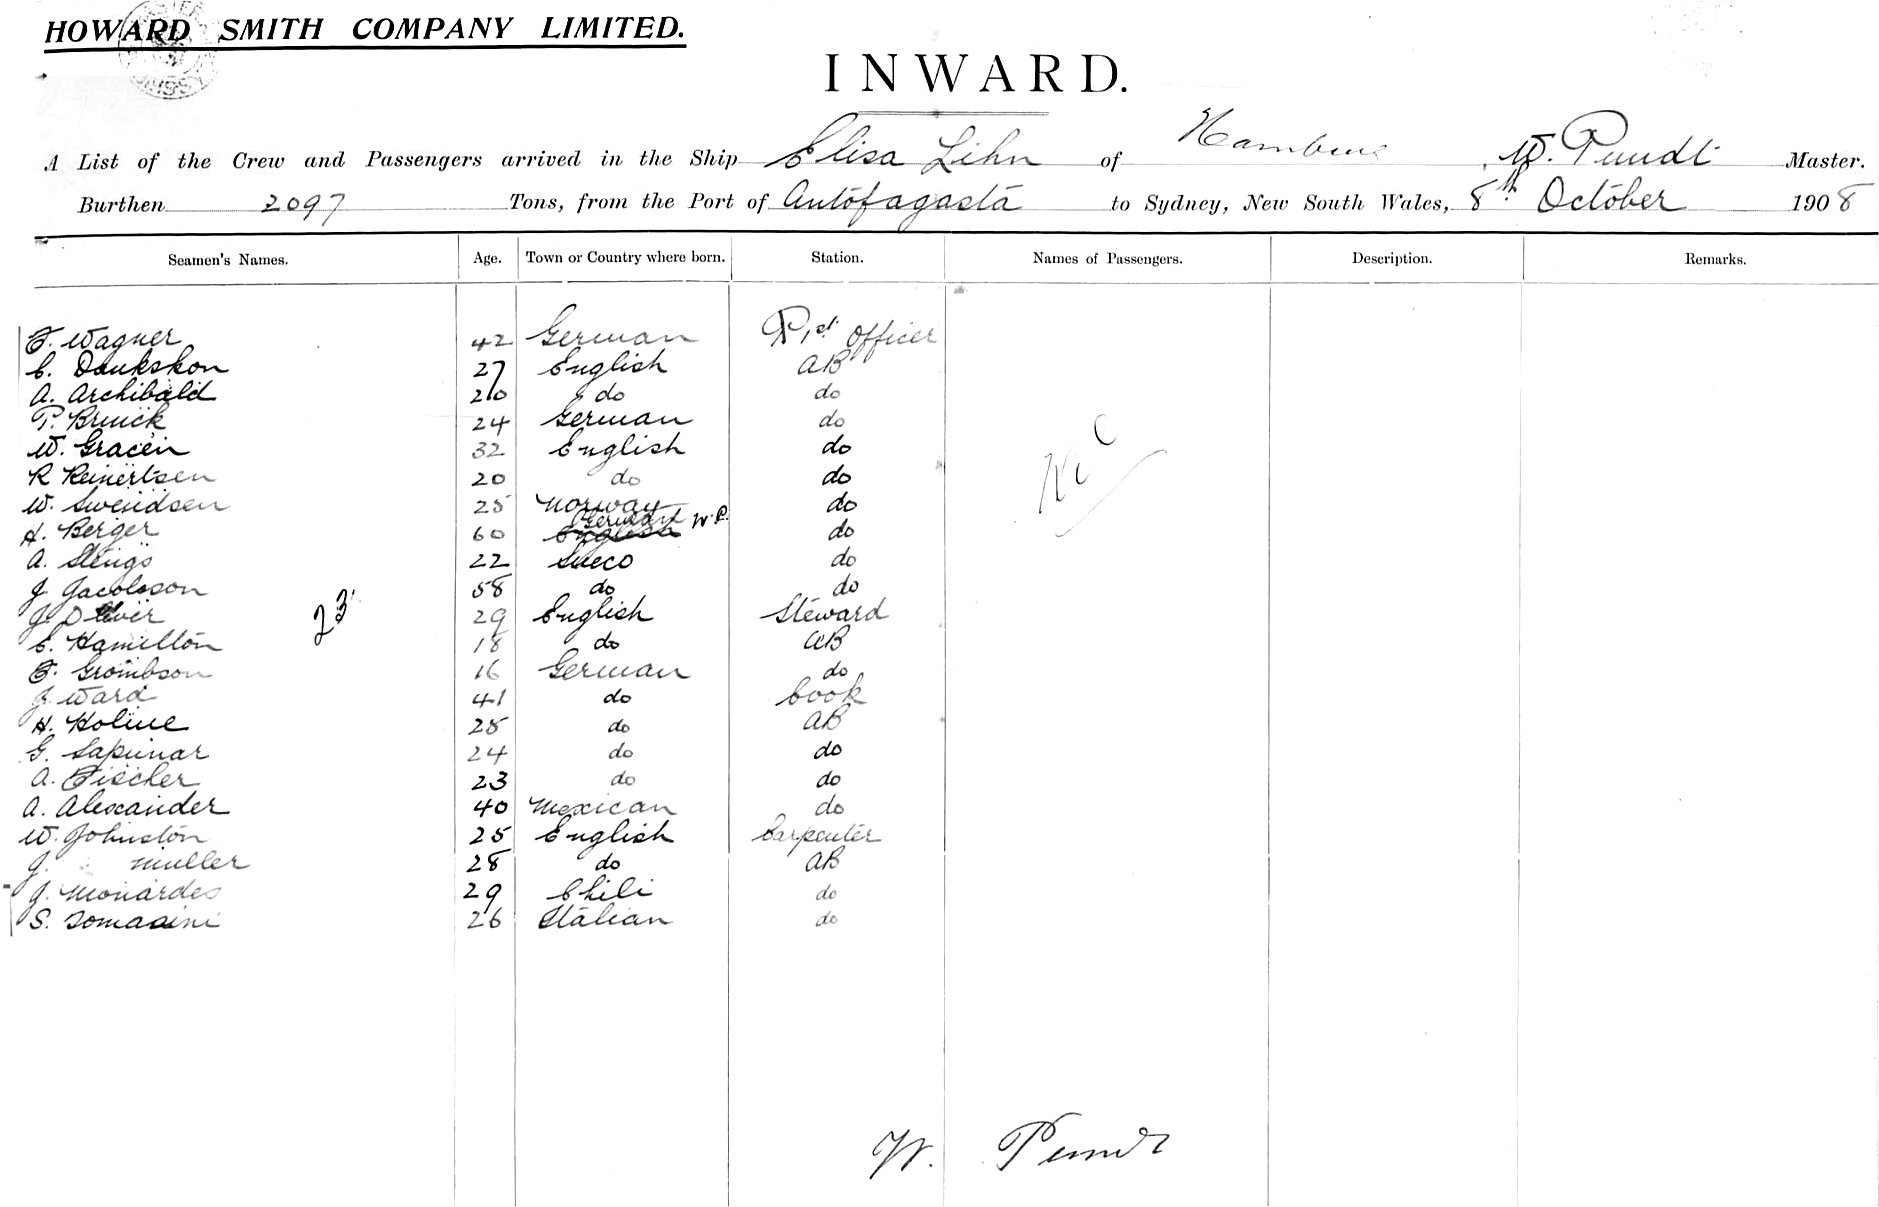 HOWARD SMITH COMPANY LIMITED.
INWARD.
A List of the Crew and Passengers arrived in the Ship Elisa Lihn of Hamburg W. Pundt Master.
Burthen 2097 Tons, from the Port of Antofagasta to Sydney, New South Wales, 8th October 1908
Seamen's Names. Age. Town or Country where born. Station. Names of Passengers. Description. Remarks.
F. Wagner 42 German 1st Officer
C. 27 English AB
A. Archibald 20 do do
P. Bruick 24 German do
W. Gracein 32 English do
R Reinertsen 20 do do
W. Swendsen 25 Norway do
H. Berger 60 English German W.P. do
A. 22 Sueco do
J. Jacobson 58 do do
J. Oliver 29 English Steward
C. Hamilton 18 do AB
F. Grombson 16 German do
J. Ward 41 do Cook
H. Holme 25 do AB
G. Sapunar 24 do do
A. Fischer 23 do do
A. Alexander 40 Mexican do
W. Johnston 25 English Carpenter
J. Muller 28 do AB
J. Monardes 29 Chili do
S. Tomasini 26 Italian do
23
W. Pundt